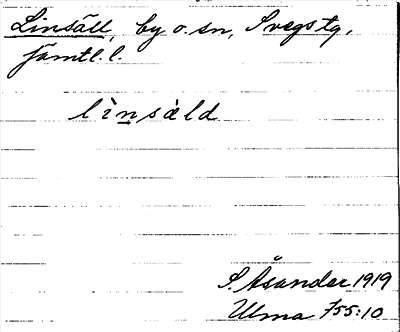 Linsäll, by o. sn, Svegs tg,
Jämtl. l.
lìnsàld
S. Åsander 1919
Ulma 755:10